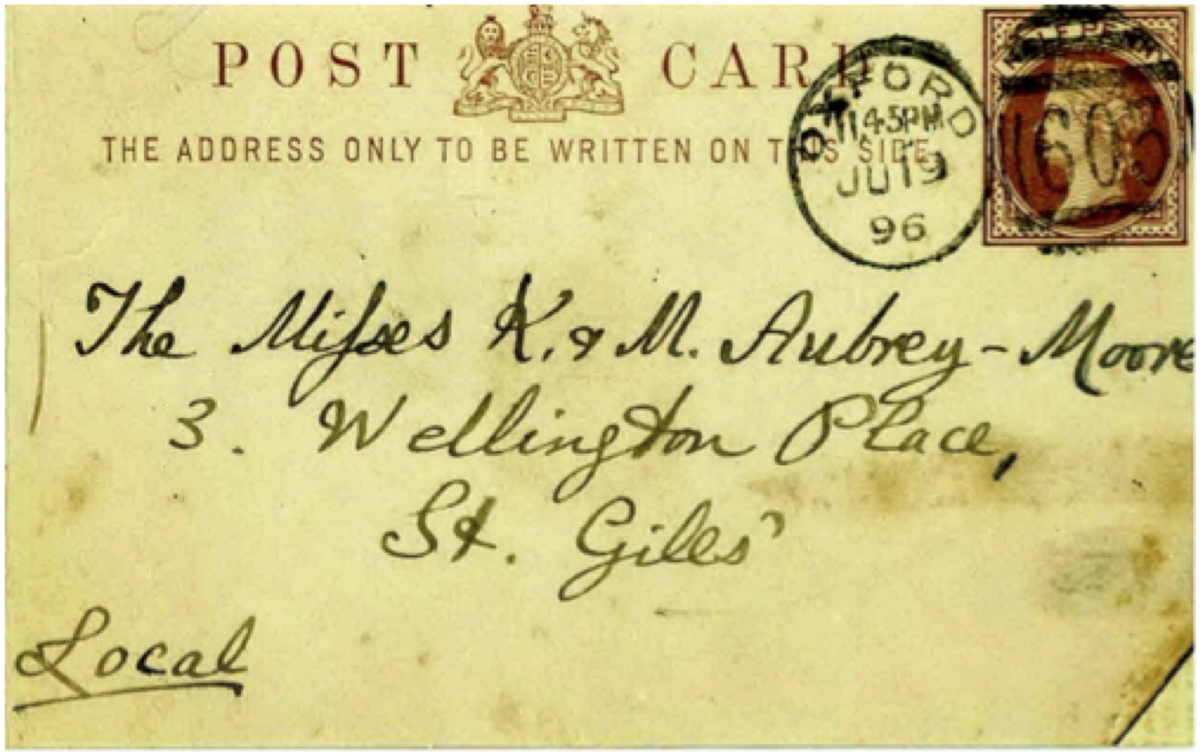 POST CARD
THE ADDRESS ONLY TO BE WRITTEN ON THIS SIDE
OXFORD
11.45PM
JU 19
96
HALF PENNY
603
The Miſses K. & M. Aubrey-Moore
3. Wellington Place,
St. Giles'
Local